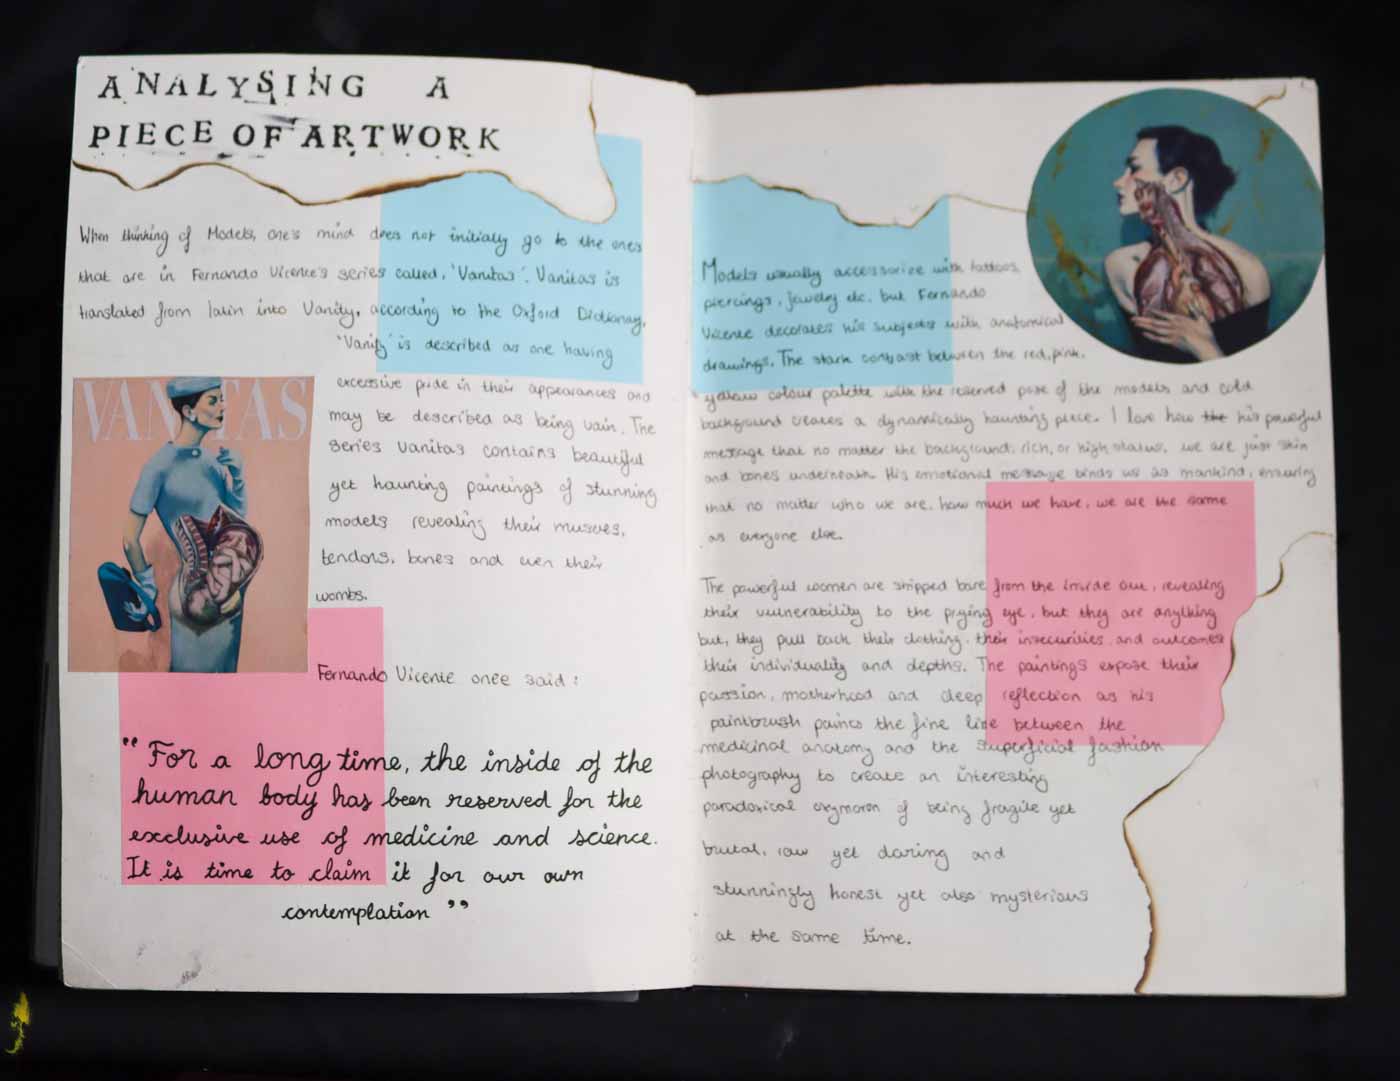 ANALYSING A
PIECE OF ARTWORK
When thinking of Models, one's mind does not initially go to the ones
that are in Fernando Vicente's series called, 'Vanitas'. Vanitas is
translated from latin into Vanity, according to the Oxford Dictionary,
'Vanity' is described as one having
excessive pride in their appearances and
may be described as being vain. The
series Vanitas contains beautiful
yet haunting paintings of stunning
models revealing their muscles,
tendons, bones and even their
wombs.
VANITAS
Fernando Vicente once said:
"For a long time, the inside of the
human body has been reserved for the
exclusive use of medicine and science.
It is time to claim it for our own
contemplation"
Models usually accessorize with tattoos,
piercings, jewelry etc. but Fernando
Vicente decorates his subjects with anatomical
drawings. The stark contrast between the red, pink,
yellow colour palette with the reserved pose of the models and cold
background creates a dynamically haunting piece. I love how the his powerful
message that no matter the background, rich, or high status, we are just skin
and bones underneath. His emotional message binds us as mankind, ensuring
that no matter who we are, how much we have, we are the same
as everyone else.
The powerful women are stripped bare from the inside out, revealing
their vulnerability to the prying eye, but they are anything
but, they pull back their clothing, their insecurities and outcomes
their individuality and depths. The paintings expose their
passion, motherhood and deep reflection as his
paintbrush paints the fine line between the
medicinal anatomy and the superficial fashion
photography to create an interesting
paradoxical oxymoron of being fragile yet
brutal, raw yet daring and
stunningly honest yet also mysterious
at the same time.